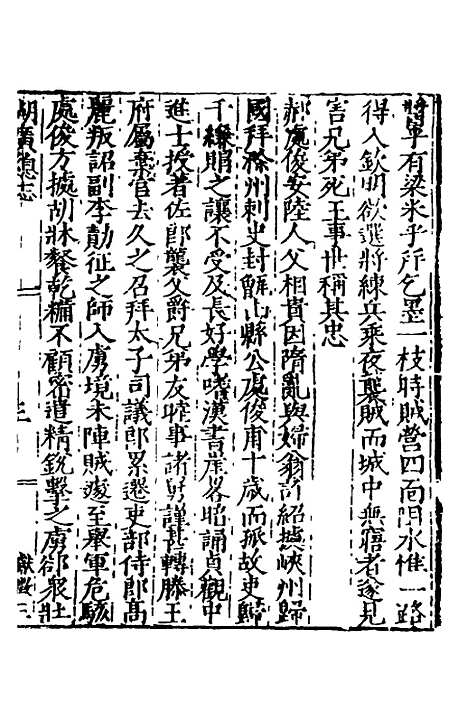 將軍有梁米乎所乞墨一枝時賊營四面阻水惟一路
得入欽明欲選將練兵乘夜襲賊而城中無寤者遂見
害兄弟死王事世稱其忠
郝處俊安陸人父相貴因隋亂與婦翁許紹據峽州歸
國拜滁州刺史封甑山縣公處俊甫十歲而孤故吏歸
千縑賵之讓不受及長好學嗜漢書崖畧暗誦貞觀中
進士授著佐郎襲父爵兄弟友睦事諸舅謹甚轉滕王
府屬棄官去久之召拜太子司議郎累遷吏部侍郎高
麗叛詔副李勣征之師入虜境未陣賊遽至舉軍危駭
處俊方據胡牀餐乾糒不顧密遣精銳擊之虜郤衆壯
湖廣總志
三
獻徵三